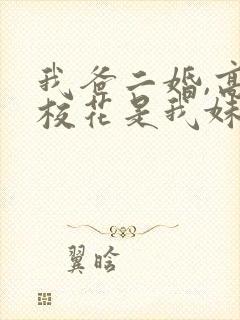 我爸二婚,高
校花是我妹
翼晗